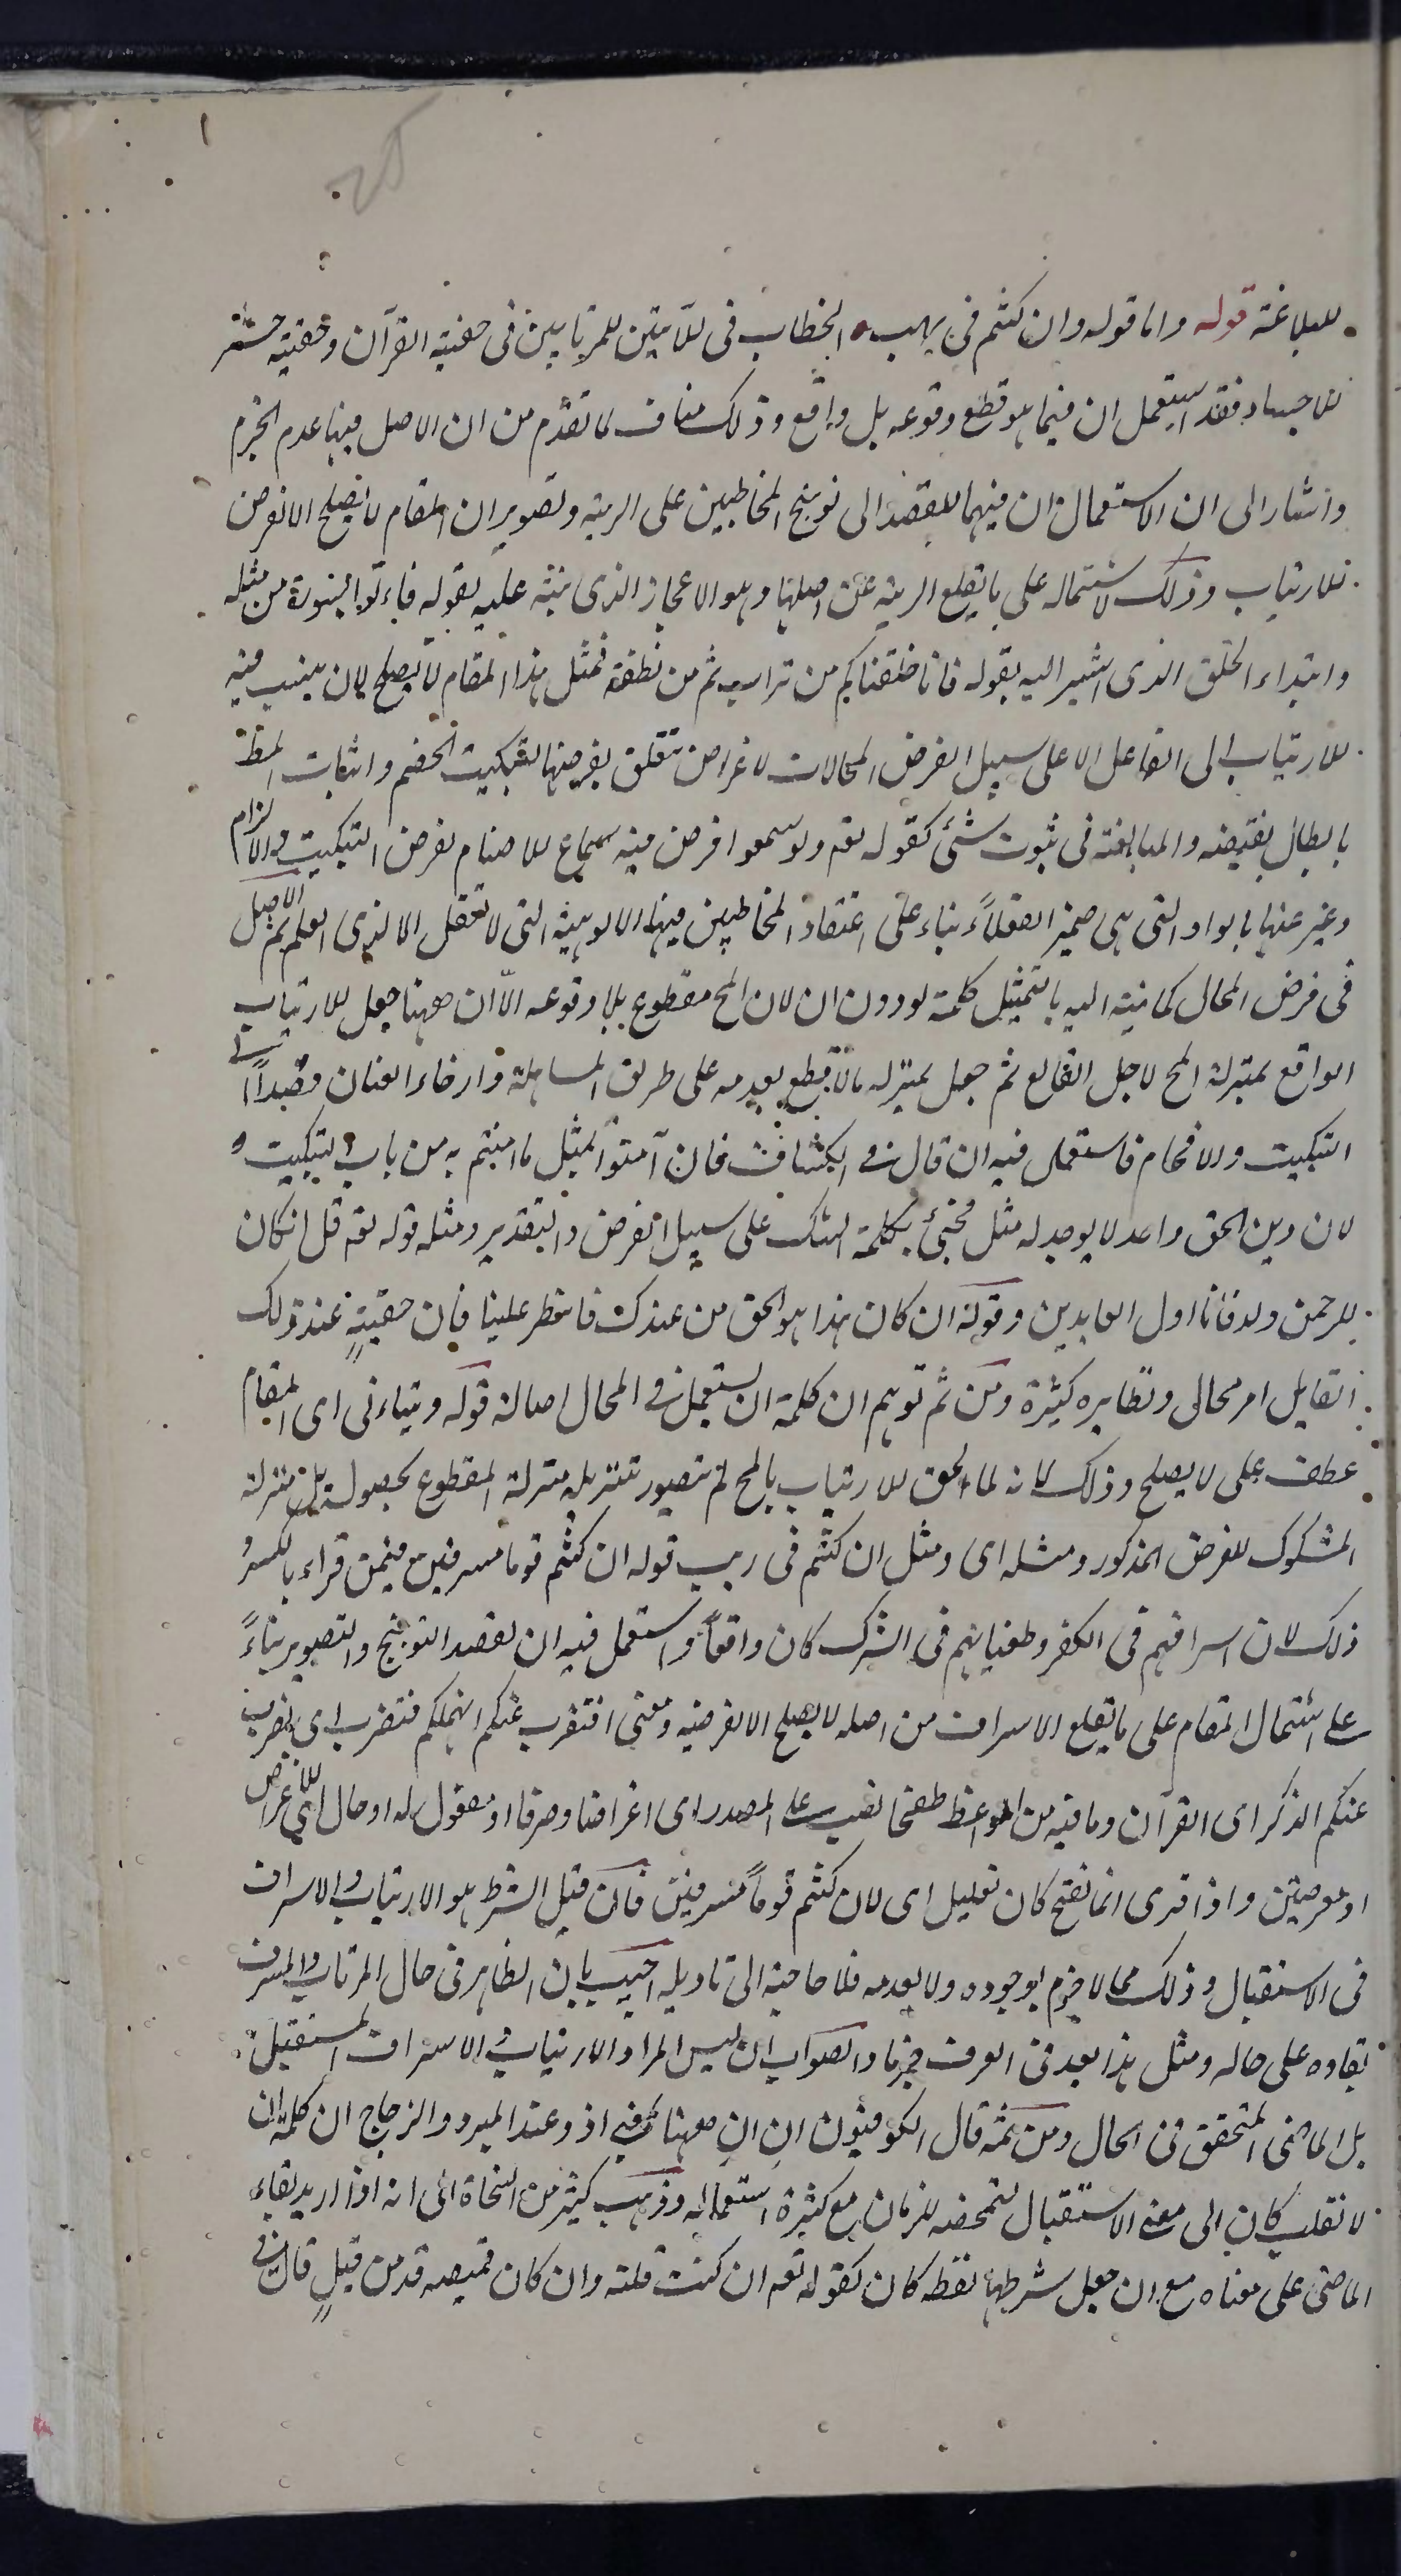 للبلاغة قوله واما قوله وان كنتم فى ريب الخطاب فى للآيتين للمرتابين فى حقية القرآن وحقية حشر
للاجساد فقد استعمل ان فيما هو قطع وقوعه بل واقع وذلك مناف لما تقدم من ان الاصل فيها عدم الجزم
واشار الى ان الاستعمال ان فيهما للقصد الى توبيخ المخاطبين على الريبة وتصوير ان المقام لا يصلح الا لفرض
للارتياب وذلك لاشتماله على ما يقلع الريبة عن اصلها وهو الاعجاز الذى نبّه عليه بقوله فاءتوا بسورة من مثله
وابتداء الخلق الذى اشير اليه بقوله فانا خلقناكم من تراب ثم من نطفة فمثل هذا المقام لا يصلح لان ينسب فيه
للارتياب الى الفاعل الا على سبيل الفرض المحالات لاغراض تتعلق بفرضها لتبكيت الخصم واثبات المط
بابطال نقيضه والمبالغة فى ثبوت شئ كقوله تعم ولو سمعوا فرض فيه سماع للاصنام لغرض التبكيت والالزام
وعبر عنها بالواو التى هى ضمير العقلاء بناء على اعتقاد المخاطبين فيها الالوهية التى لا تعقل الا لذى العلم ثم الاصل
فى فرض المحال كما نبّه اليه بالتمثيل كلمة لو دون ان لان المح مقطوع بلا وقوعه الّا ان ههنا جعل للارتياب
الواقع بمنزلة المح لاجل القالع ثم جعل بمنزله ما لا قطع بعدمه على طريق المساهلة وارخاء العنان قصدا الى
التبكيت والافحام فاستعمل فيه ان قال فى الكشاف فان آمنوا بمثل ما امنتم به من باب التبكيت و
لان دين الحق واحد لا يوجد له مثل فجئ بكلمة الشك على سبيل الفرض والتقدير ومثله قوله تعم قل ان كان
للرحمن ولد فانا اول العابدين وقوله ان كان هذا هو الحق من عندك فامطر علينا فان حقيته عند ذلك
القايل امر محالى ونظايره كثيرة ومن ثم توهم ان كلمة ان يستعمل فى المحال اصالة قوله ويتاءتى اى المقام
عطف على لا يصلح وذلك لانه لما الحق للارتياب بالمح لم يتصور تنزيله منزلة المقطوع بحصوله بل منزلة
المشكوك للغرض المذكور ومثله اى ومثل ان كنتم فى ريب قوله ان كنتم قوما مسرفين فيمن قراء بالكسر و
ذلك لان اسرافهم فى الكفر وطغيانهم فى الشرك كان واقعاً واستعمل فيه ان لقصد التوبيخ والتصوير بناءً
على اشتمال المقام على ما يقلع الاسراف من اصله لا يصلح الا لفرضه ومعنى افنضرب عنكم انهملكم فنضرب اى نضرب
عنكم الذكر اى القرآن وما فيه من المواعظ صفحا نصب على المصدر اى اعراضا وصرفا او مفعول له او حال اى للاعراض
او معرضين واذا قرى انما بفتح كان تعليل اى لان كنتم قوماً مسرفين فان قيل الشرط هو الارتياب والاسراف
فى الاستقبال وذلك مما لا جزم بوجوده ولا بعدمه فلا حاجة الى تاويله اجيب بان الظاهر فى حال المرتاب والمسرف
بقاوه على حاله ومثل هذا بعد فى العرف جزما والصواب ان ليس المراد الارتياب فى الاسراف المستقبل
بل الماضى المتحقق فى الحال ومن ثمه قال الكوفيون ان ان ههنا بمعنى اذ وعند المبرد والزجاج ان كلمة ان
لا تقلب كان الى معنى الاستقبال لتمحضه للزمان مع كثرة استعماله وذهب كثير من النحاة الى انه اذا اريد بقاء
الماضى على معناه مع ان جعل شرطها نقطه كان كقوله تعم ان كنت قلته وان كان قميصه قد من قبل قال فى